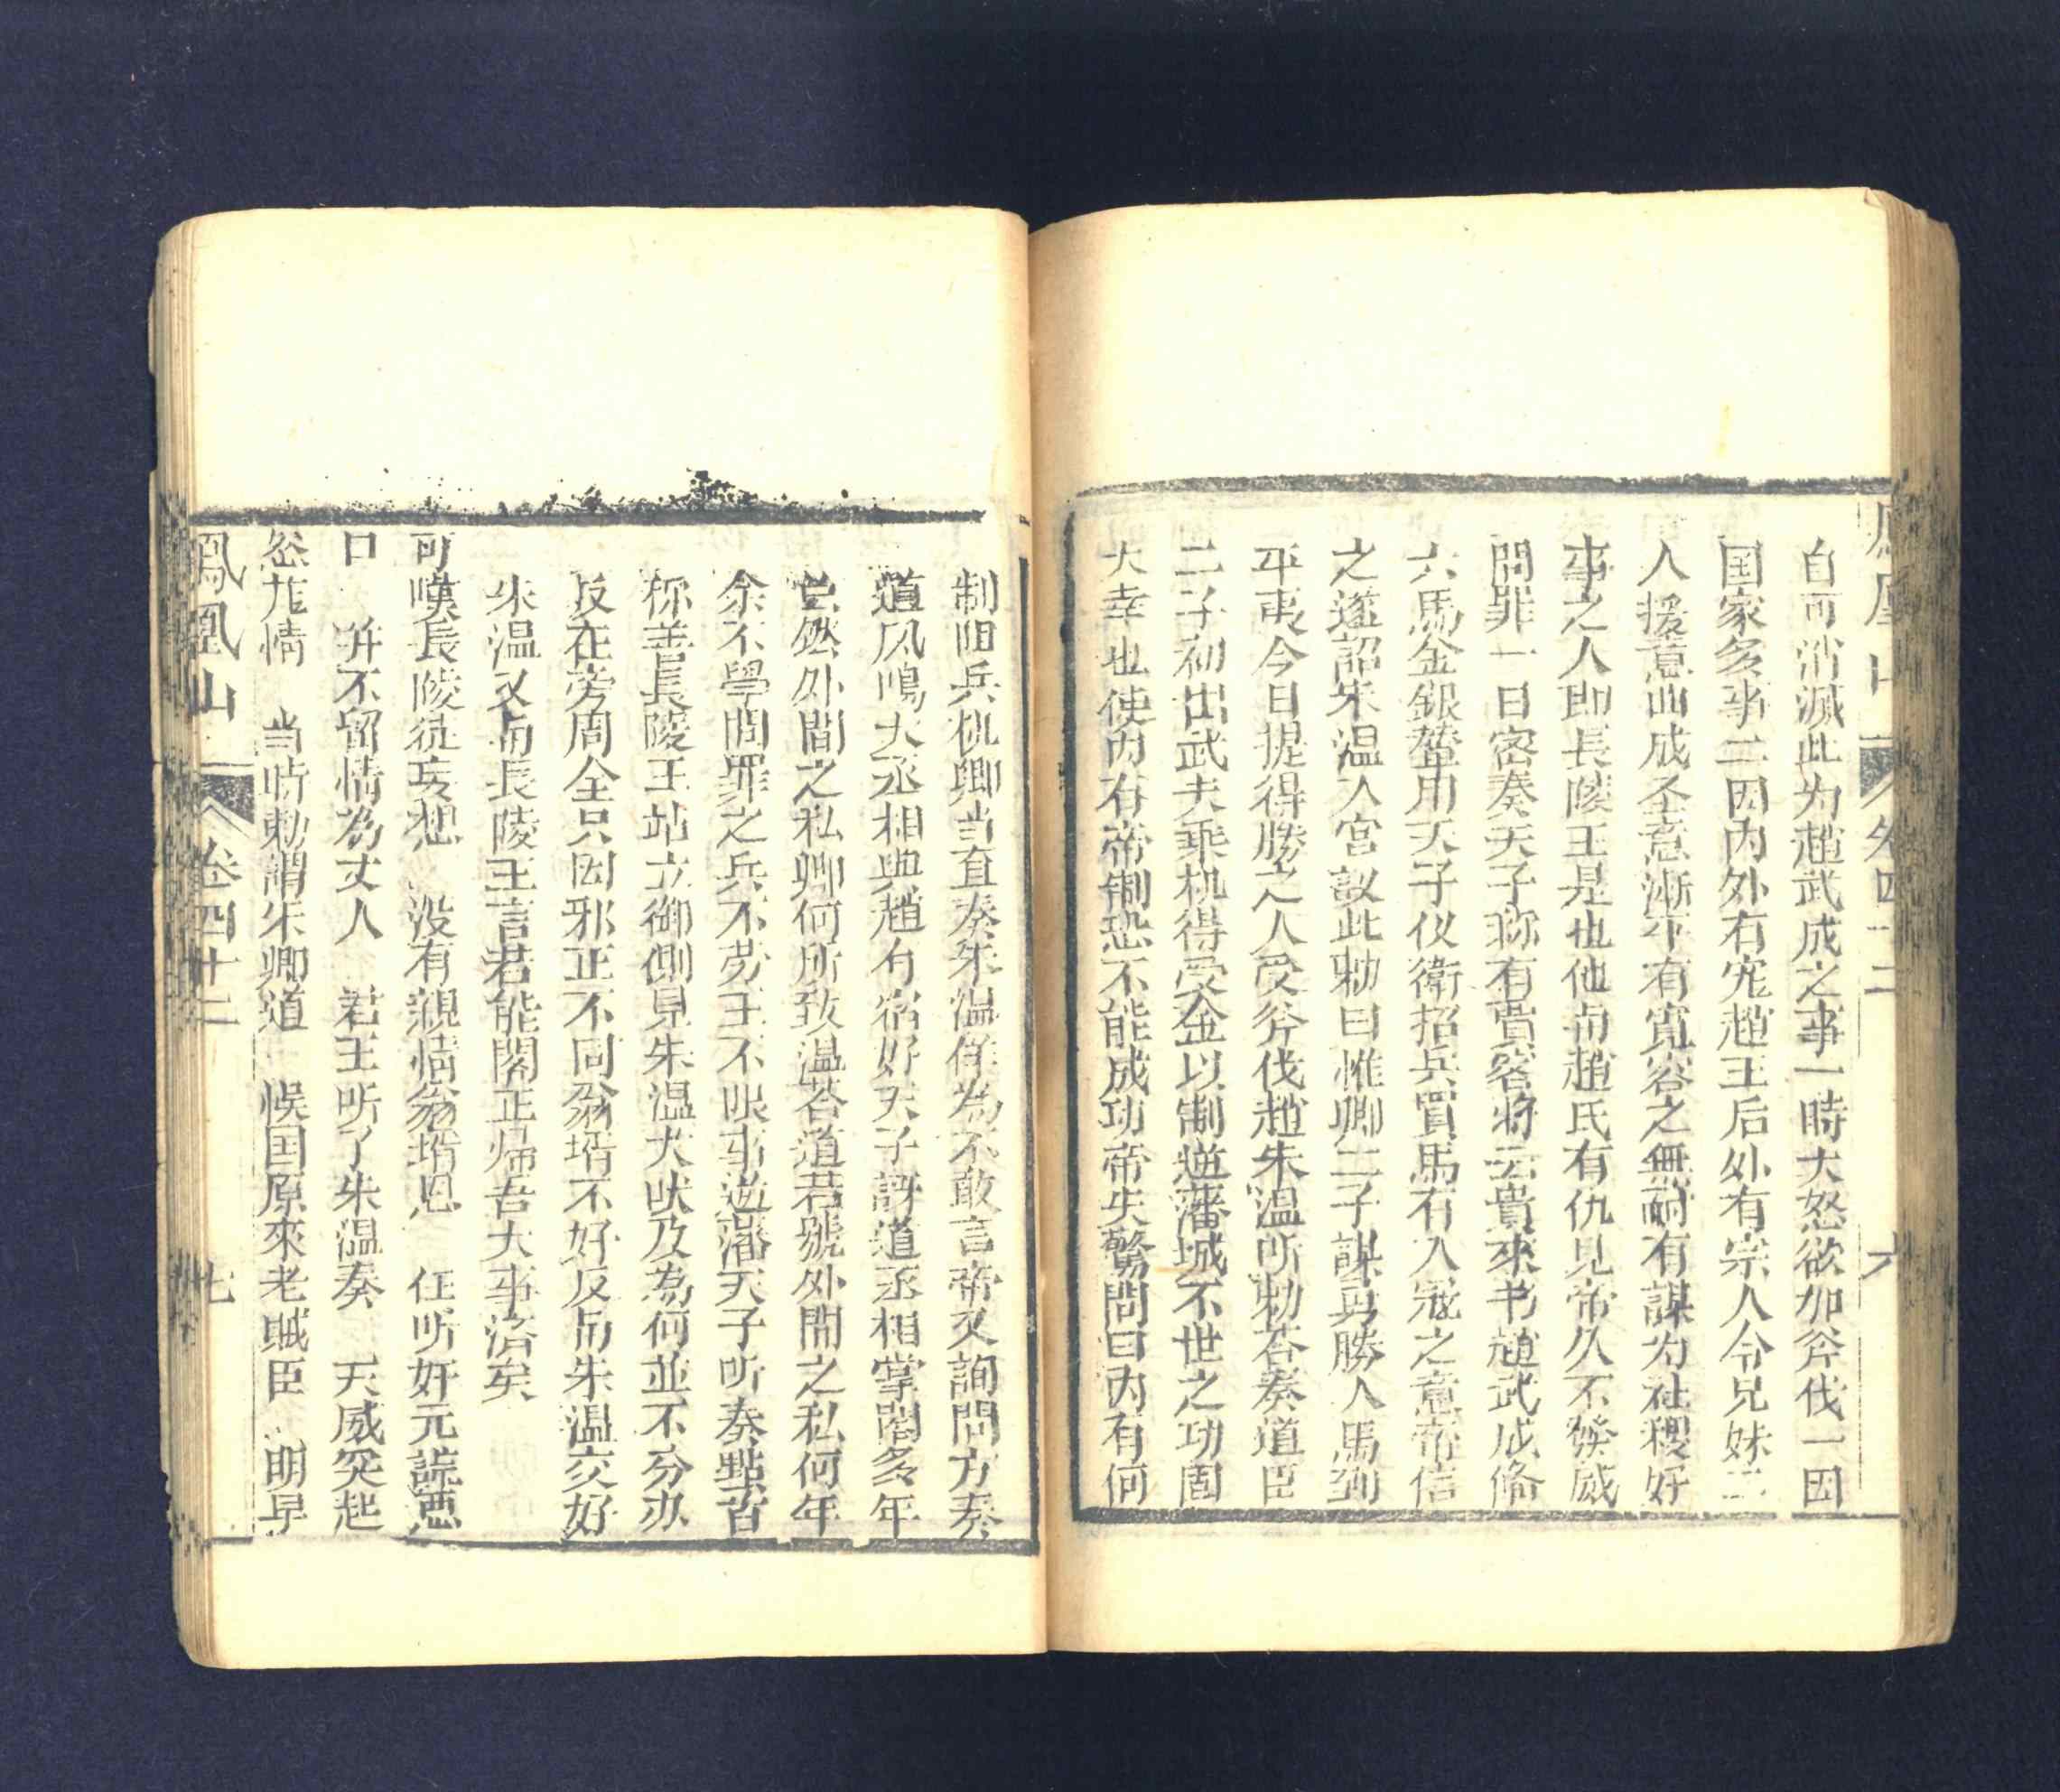 鳳凰山 卷四十二 六
自可消滅此为趙武成之事一時大怒欲加斧伐一因
国家多事二因内外有宠趙王后外有宗人令兄妹二
人援意曲成圣意漸不有寬容之無耐有謀为社稷好
事之人即長陵王是也他与趙氏有仇見帝久不發威
問罪一日密奏天子称有賣容将云貴來书趙武成脩
六馬金銀輦用天子仪衛招兵買馬有入冦之意帝信
之遂詔朱温入宫議此勅曰惟卿二子謀勇勝人馬到
平夷今日提得勝之人受斧伐趙朱温听勅答奏道臣
二子初出武夫乘机得受金以制逆藩城不世之功固
大幸也使内有帝制恐不能成功帝失驚問曰内有何
制阻兵机卿当直奏朱温佯為不敢言帝又詢問方奏
道凤鳴大丞相與趙有宿好天子訝道丞相掌閣多年
岂然外間之私卿何所致温答道君號外間之私何年
余不學問罪之兵不劳王不眼事逆藩天子听奏點首
称善長陵王站立御側見朱温犬吠及為何並不分办
反在旁周全只因邪正不同翁壻不好反与朱温交好
朱温又与長陵王言君能閣正帰吾大事济矣
可嘆長陵徒妄想 没有親情翁壻恩 任听奸元謊惡
口 并不留情為丈人 君王听了朱温奏 天威突起
忿怒情 当时勅謂朱卿道 悞国原來老賊臣 明早
鳳凰山 卷四十二 七